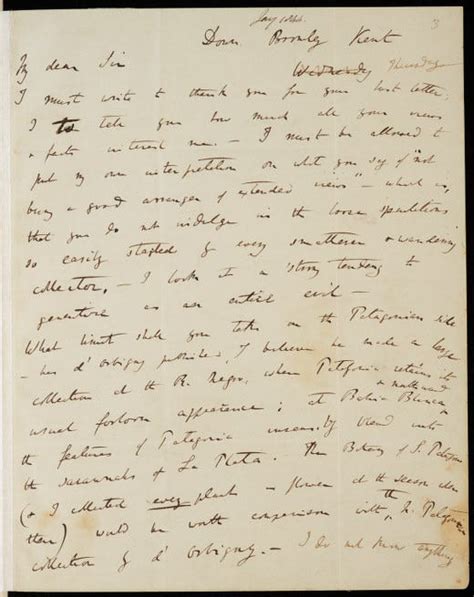 Jany 1844
3
Down Bromley Kent
My dear Sir Wednesday Thursday
I must write to thank you for your last letter;
I to tell you how much all your views
& facts interest me. — I must be allowed to
put my own interpretation on what you say of "not
being a good arranger of extended views" — which is,
that you do not indulge in the loose speculations
so easily started by every smatterer & wandering
collector. — I look at a strong tendency to
generalize as an entire evil —
What limit shall you take on the Patagonian side
— has d'Orbigny published, I believe he made a large
collection at the R. Negro, where Patagonia retains its
usual forlorn appearance; at Bahia Blanca & northward
the features of Patagonia insensibly blend into
the savannahs of La Plata. — The Botany of S. Patagonia
(& I collected every plant in flower at the season when
there) would be worth comparison with the N. Patagonian
collection by d'Orbigny. — I do not know anything